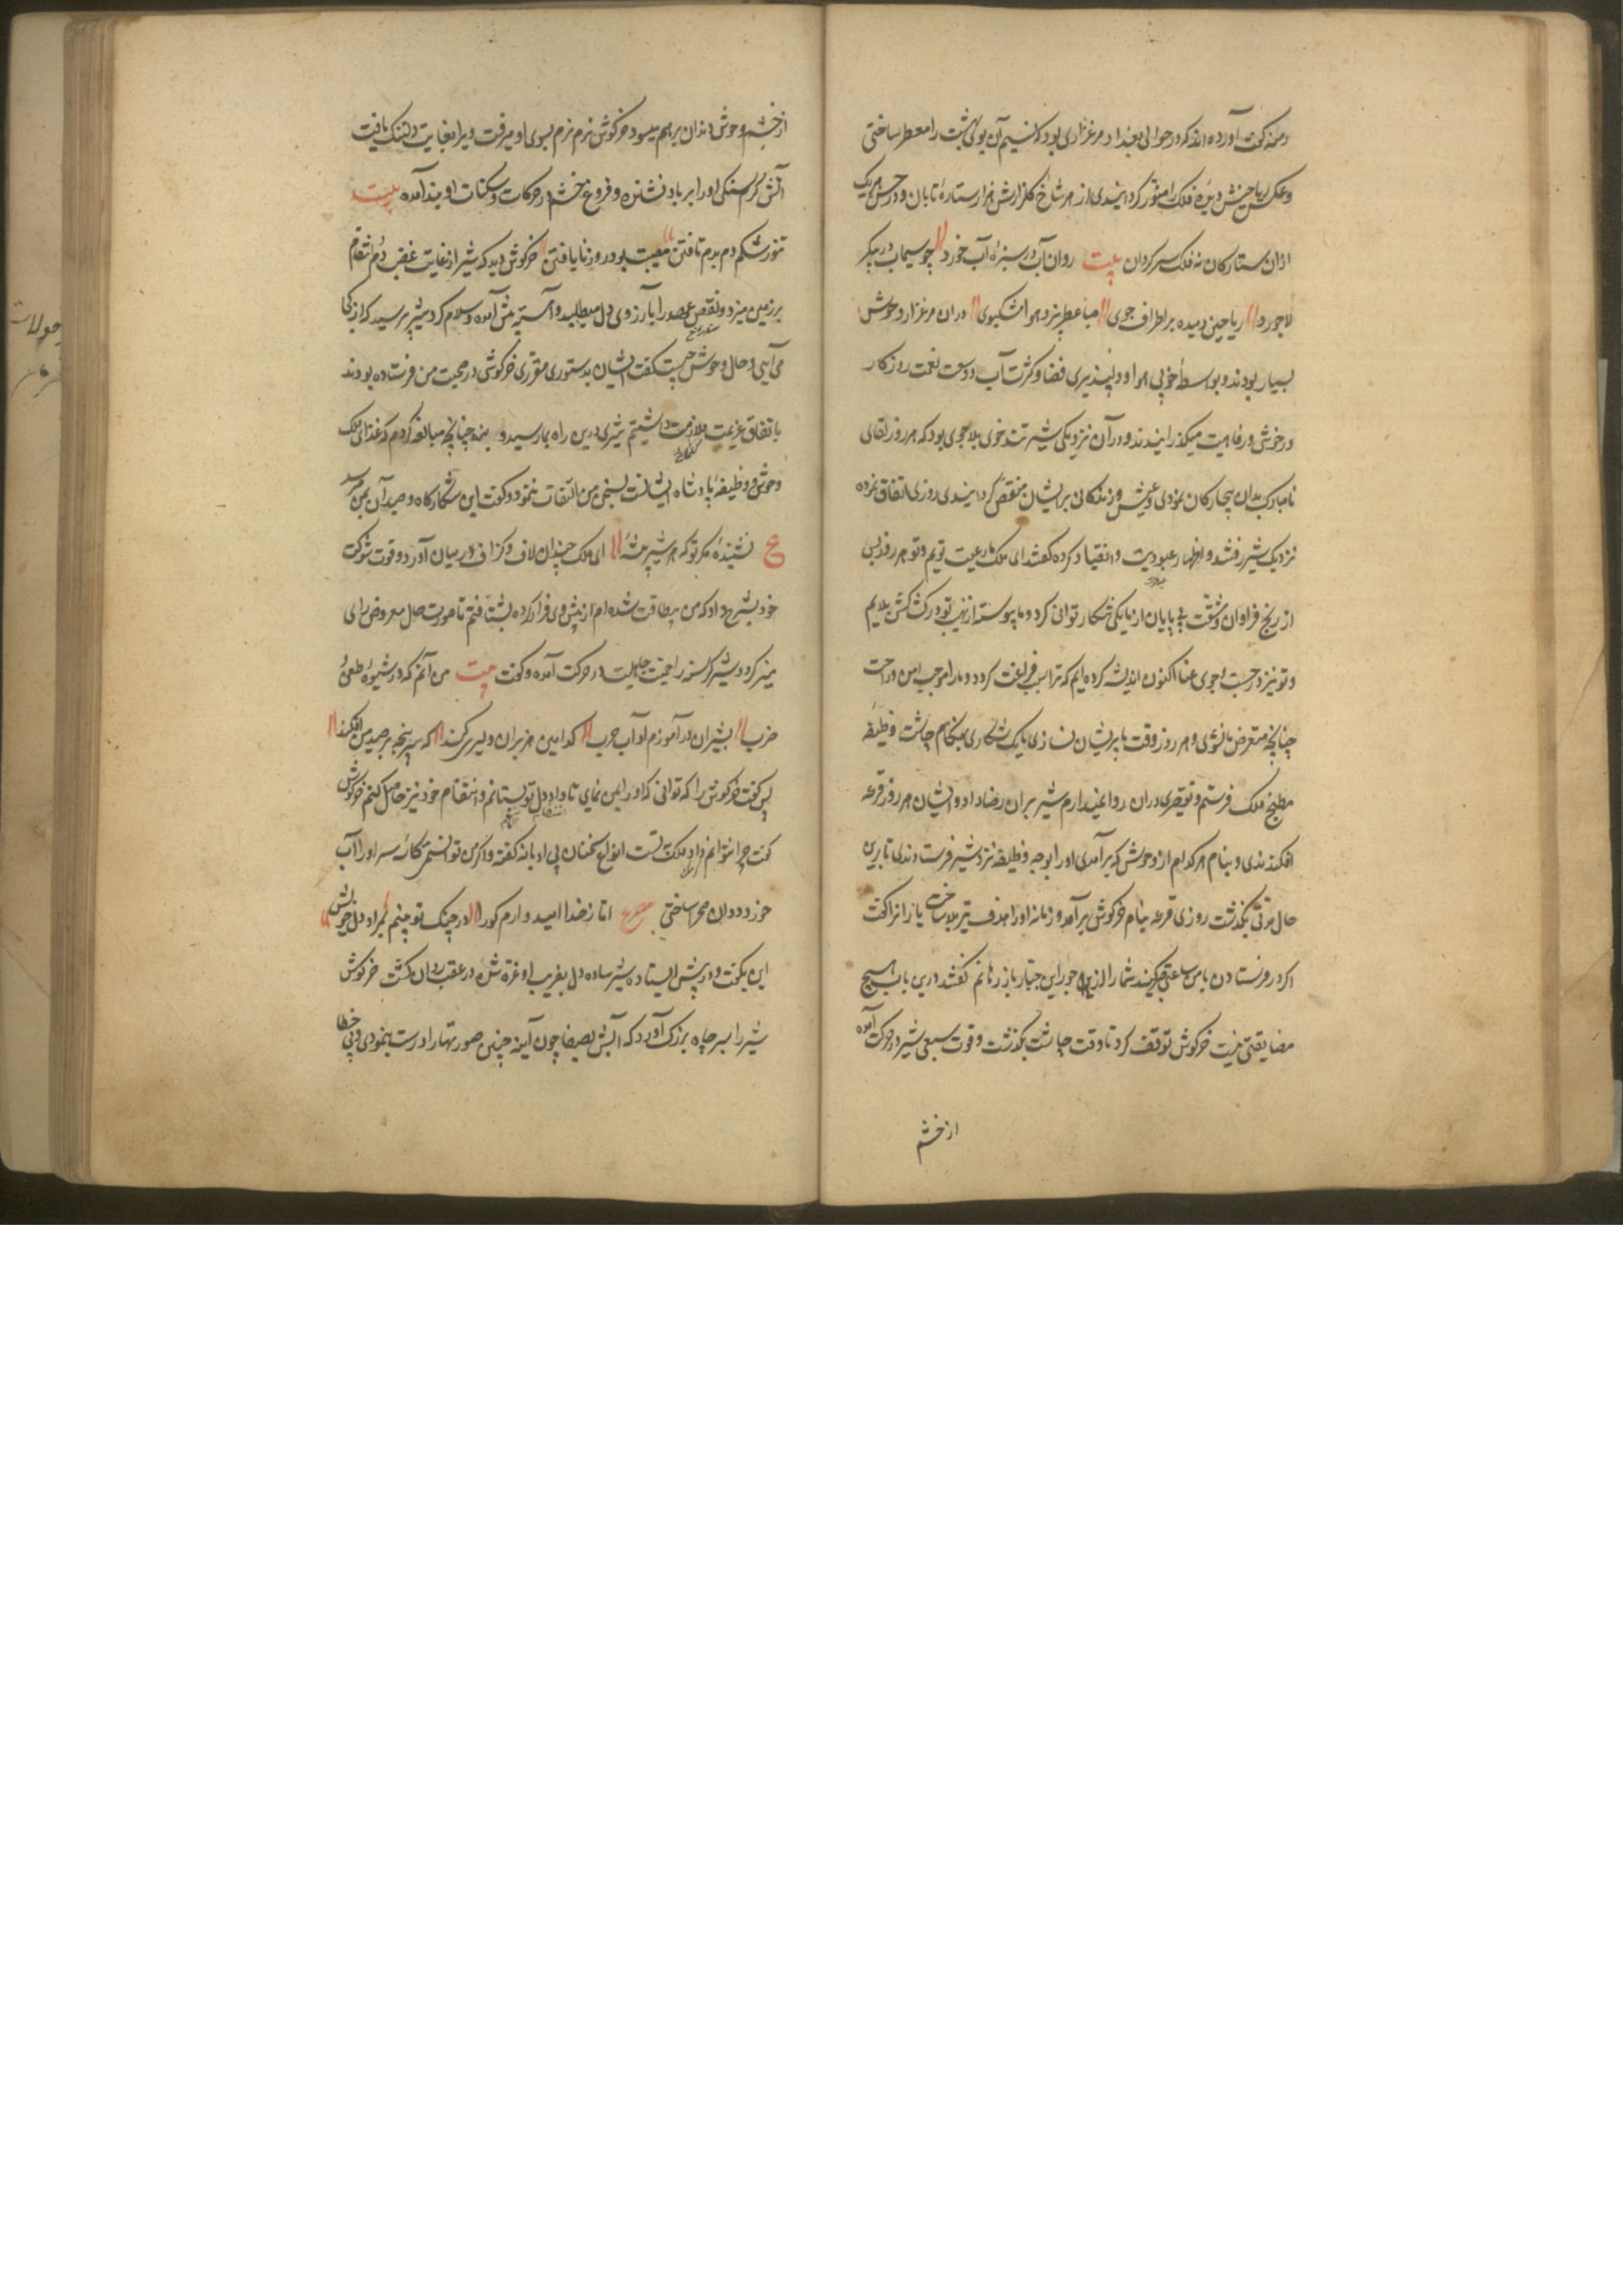 دمنه گفت آورده اند که در حوالی بغداد مرغزاری بود که نسیم آن بوی بهشت را معطر ساختی
و عکس ریاحینش دیده فلک را منور گردانیدی از هر شاخ گلزارش هزار ستاره تابان و در حسن هر یک
ازان ستارگان نه فلک سرگردان بیت روان آب در سبزه آب خورد چو سیماب در پیکر
لاجورد ریاحین دمیده بر اطراف جوی صبا عطر بیز و هوا مشکبوی دران مرغزار وحوش
بسیار بودند و بواسطه خوبی هوا و دلپذیری فضا و کثرت آب و وسعت نعمت روزگار
در خوشی و رفاهیت میگذرانیدند و در آن نزدیکی شیر تند خوی بلاجوی بود که هر روز لقای
نامبارک بدان بیچارگان نمودی و عیش و زندگانی بر ایشان منغص گردانیدی روزی اتفاق نموده
نزدیک شیر رفتند و اظهار عبودیت و انقیاد کرده گفتند ای ملک ما رعیت توییم و تو هر روز پس
از رنج فراوان و مشقت بی پایان از ما یکی شکار توانی کرد و ما پیوسته از نهیب تو در کشاکش بلاییم
و تو نیز در جست و جوی عنا اکنون اندیشه کرده ایم که ترا سبب فراغت گردد و ما را موجب امن و راحت
چنانچه متعرض ما نشوی و هر روز وقت ما پریشان نسازی ما یک شکاری بهنگام چاشت وظیفه
مطبخ ملک فرستیم و تقصیری دران روا نمیداریم شیر بران رضا داد و ایشان هر روز قرعه
افکندندی و بنام هر کدام از وحوش که برآمدی او را بوجه وظیفه نزد شیر فرستادندی تا برین
حال مدتی بگذشت روزی قرعه بنام خرگوش برآمد و زمانه او را هدف تیر بلا ساخت یارانرا گفت
اگر در فرستادن با من مسامحتی کنید شما را از جور این جبار باز رهانم گفتند درین باب هیچ
مضایقتی نیست خرگوش توقف کرد تا وقت چاشت بگذشت و قوت سبعی شیر در حرکت آمده
از خشم
از خشم وحوش دندان بر هم میسود خرگوش نرم نرم بسوی او میرفت ویرا بغایت دلتنگ یافت
آتش گرسنگی او را بر باد نشانده و فروغ خشم در حرکات و سکنات او پیدا آمده بیت
تنور شکم دم بدم تافتن مصیبت بود روز نایافتن خرگوش دید که شیر از غایت غضب دم انتقام
بر زمین میزد و نقض عهد را بآرزوی دل میطلبید و آهسته پیش آمده و سلام کرد شیر پرسید که از کجا
می آیی و حال وحوش چیست گفت ایشان بدستوری مقرری خرگوشی در صحبت من فرستاده بودند
باتفاق عزیمت ملازمت داشتیم شیری درین راه بما رسید و بستد چنانچه مبالغه کردم که غذای ملک
وحوش و وظیفه پادشاه ایشانست بسخن من التفات ننمود و گفت این شکارگاه و صید آن بمن میرسد
ع نشنیده مگر تو که هر شیر بیشه ای ملک چندان لاف و گزاف در میان آورد و قوت و شوکت
خود شرح داد که من بیطاقت شده ام از پیش وی فرار کرده بشتافتم تا صورت حال معروض رای
منیر گردد شیر گرسنه را حمیت جاهلیت در حرکت آمده و گفت بیت من آنم که در شیوه طعن و
ضرب بشیران در آموزم آداب حرب کدامین هزبران دلیری کند که سر پنجه بر صید من افکند
پس گفت خرگوش را که توانی که او را بمن نمایی تا داد دل تو بستانم و انتقام خود نیز حاصل کنم خرگوش
گفت چرا نتوانم و او ملک نسبت انواع سخنان بی ادبانه گفته و اگر من توانستمی کاسه سر او را آب
خور ددان صحرا ساختی مصرع اما ز خدا امید دارم کو را در چنگ تو بینم بمراد دل خویش
این بگفت و در پیش ایستاد شیر ساده دل بفریب او غره شده در عقب روان گشت خرگوش
شیر را بسر چاه بزرگ آورد که آبش بصفا چون آینه چین صورتها را درست بنمودی و بی خطا